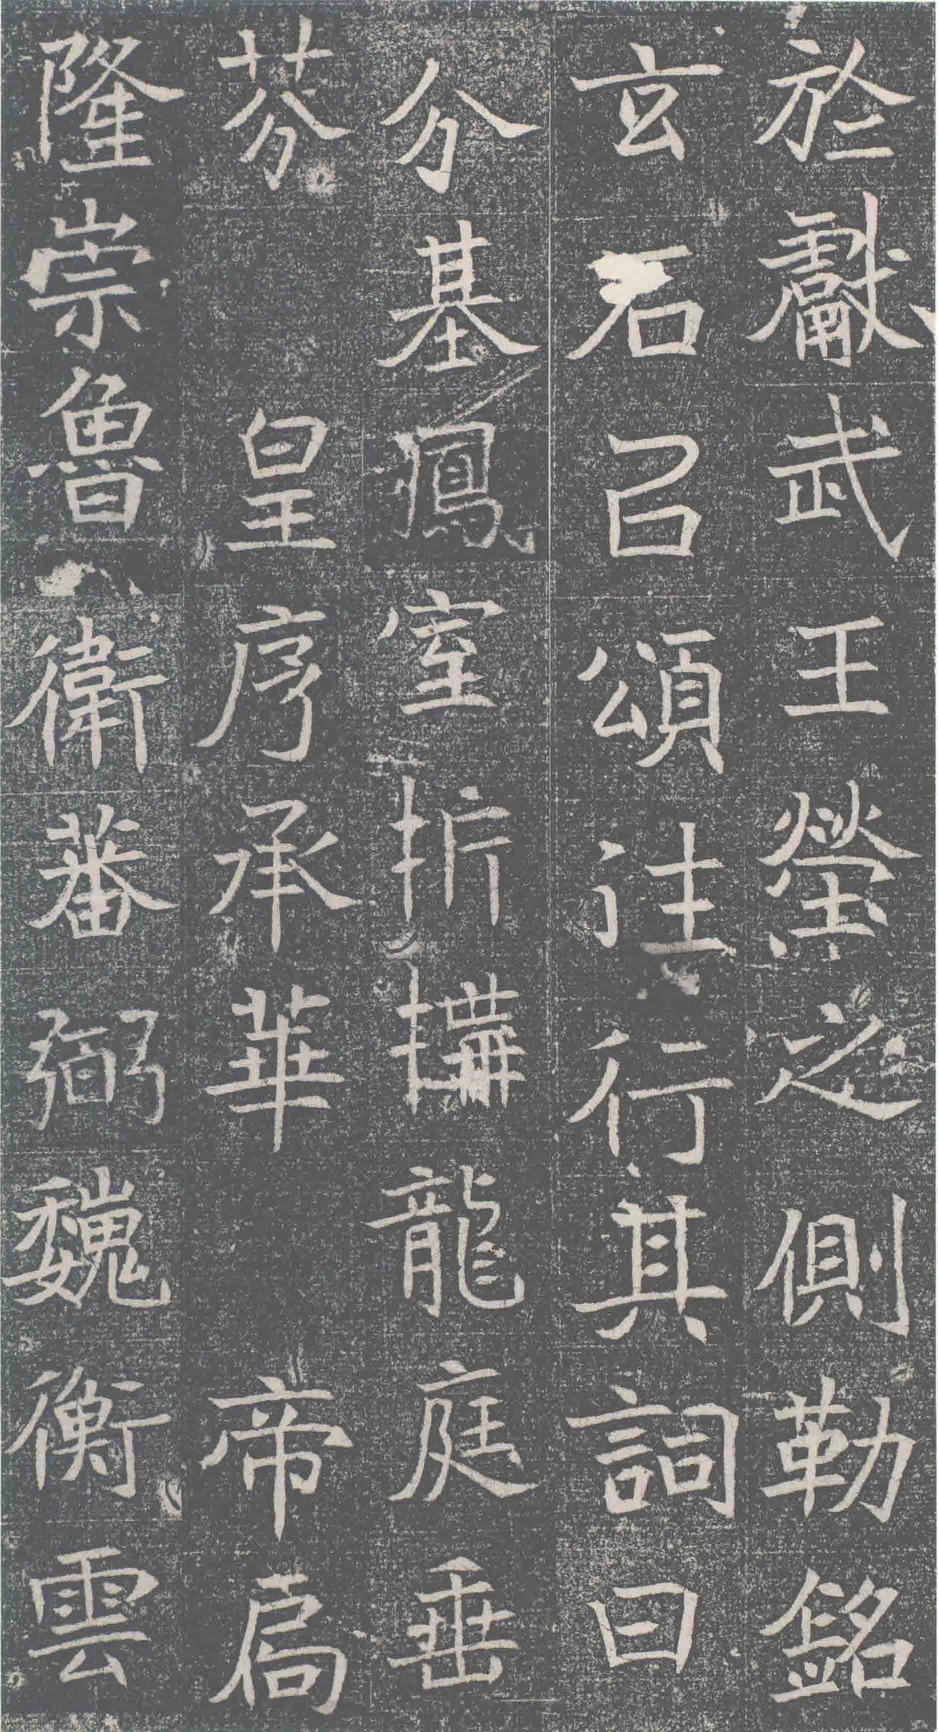 於獻武王塋之側勒銘
玄石以頌往行其詞曰
分基鳳室折構龍庭垂
芬皇序承華帝扃
隆崇魯衛蕃弼魏衡雲